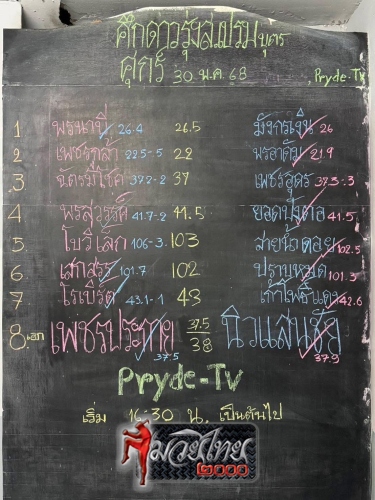 ศึกดาวรุ่งสมรมบุตร
ศุกร์ 30 พ.ค 68 Pryde-TV
1 พรนานี่ 26.4 26.5 มังกรเงิน 26
2 เพชรกล้า 22.5-.5 22 พรอาคัม 21.9
3 ฉัตรมีโชค 37.2-2 37 เพชรอุดร 37.3-.3
4 พรสุวรรค์ 41.7-2 41.5 ยอดปังตอ 41.5
5 โบวี่เล็ก 106-3 103 สายน้ำดอย 102.5
6 เสกสรร 101.7 102 ปราบหมด 101.3
7 โรเบิร์ต 43.1-1 43 เก้าโพธิ์แดง 42.6
8 เอก เพชรประกาย 37.5 37.5/38 นิวแสนชัย 37.9
Pryde-TV
เริ่ม 16:30 น. เป็นต้นไป
มวยไทย
2000